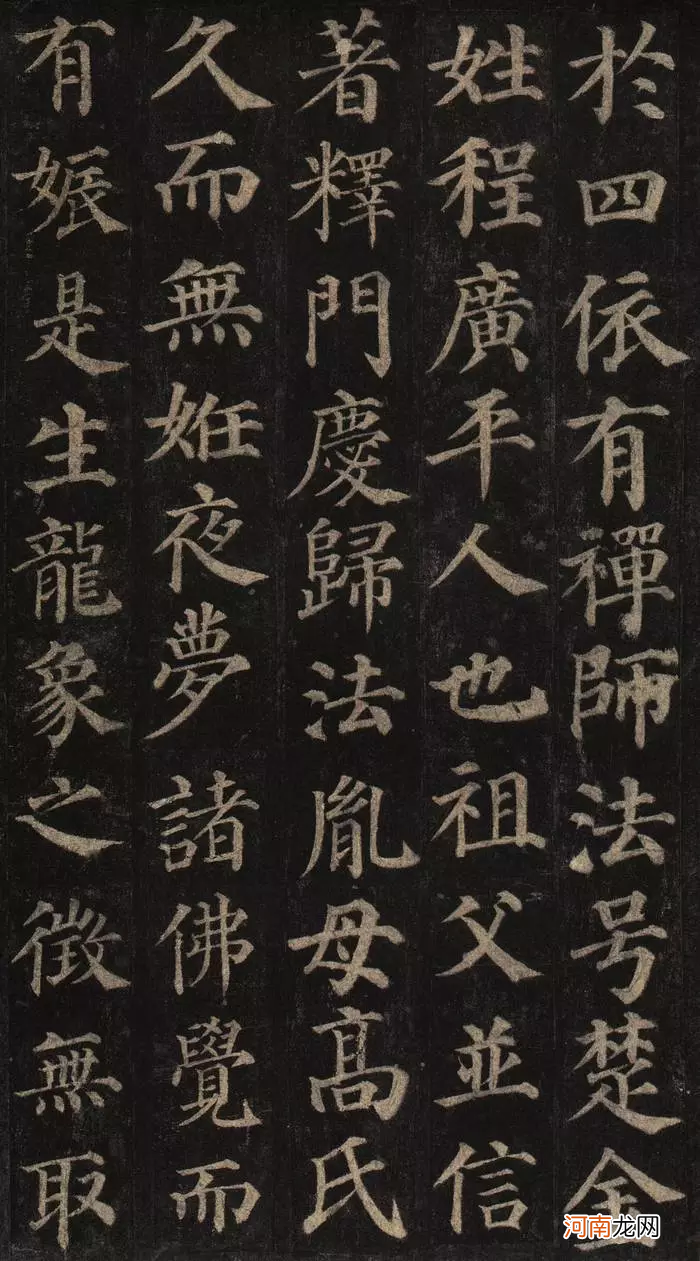 於四依有禪師法号楚金
姓程廣平人也祖父並信
著釋門慶歸法胤母髙氏
久而無姙夜夢諸佛覺而
有娠是生龍象之徵無取
河南龙网